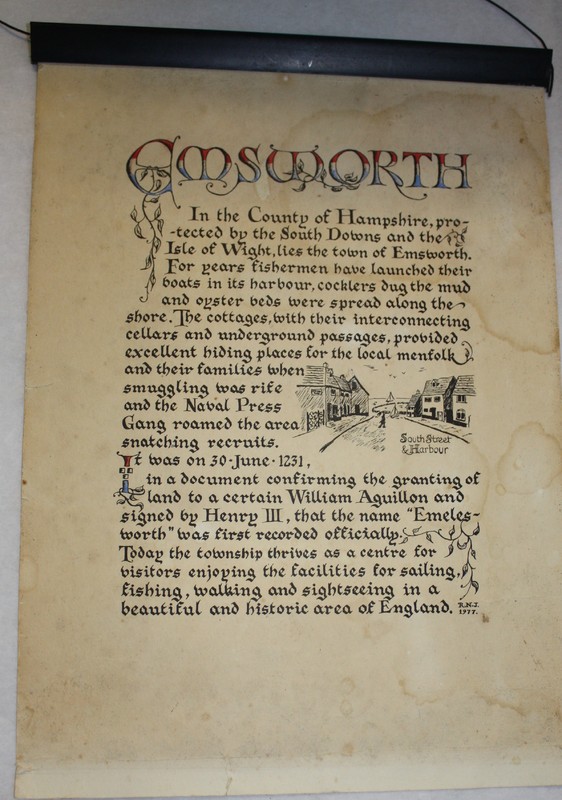 EMSWORTH
In the County of Hampshire, pro-
-tected by the South Downs and the
Isle of Wight, lies the town of Emsworth.
For years fishermen have launched their
boats in its harbour, cocklers dug the mud
and oyster beds were spread along the
shore. The cottages, with their interconnecting
cellars and underground passages, provided
excellent hiding places for the local menfolk
and their families when
smuggling was rife
and the Naval Press
Gang roamed the area
snatching recruits.
South Street
& Harbour
It was on 30·June·1231,
in a document confirming the granting of
land to a certain William Aguillon and
signed by Henry III, that the name "Emeles-
worth" was first recorded officially.
Today the township thrives as a centre for
visitors enjoying the facilities for sailing,
fishing, walking and sightseeing in a
beautiful and historic area of England.
R.N.J.
1977.